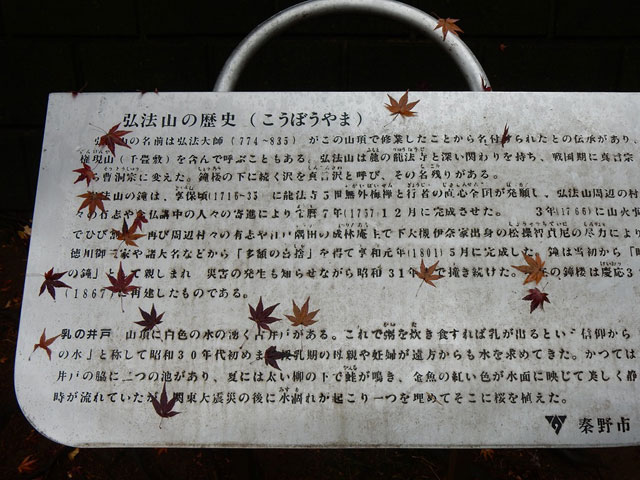 弘法山の歴史(こうぼうやま)
弘法山の名前は弘法大師(774~835)がこの山頂で修業したことから名付けられたとの伝えがあり、
権現山(千畳敷)を含んで呼ぶこともある。弘法山は龍の龍法寺と深い関わりを持ち、戦国期に真言宗
曹洞宗に変えた。鐘楼の下に続く沢を真言沢と呼び、その名残りがある。
弘法山の鐘は、享保頃(1716~35)に龍法寺5世無外梅禅と行者の直心全国が発願し、弘法山周辺の村
々の有志や念仏講中の人々の寄進により宝暦7年(1757)12月に完成させた。 3年(1766)に山火事
でひび割 再び周辺村々の有志や江戸隅田の成林庵 上で下大槻伊奈家出身の松操智貞尼の尽力により
徳川御三家や諸大名などから「多額の喜捨」を得て享和元年(1801)5月に完成した。鐘は当初から「時
の鐘」として親しまれ 災害の発生も知らせながら昭和31年まで撞き続けた。 の鐘楼は慶応3
(1867)に再建したものである。
乳の井戸 山頂に白色の水の湧く古井戸がある。これで粥を炊き食すれば乳が出るという信仰から
の水」と称して昭和30年代初めまで授乳期の母親や妊婦が遠方からも水を求めてきた。かつては
井戸の脇に二つの池があり、夏には太い柳の下で蛙が鳴き、金魚の紅い色が水面に映じて美しく静
時が流れていたが、関東大震災の後に水涸れが起こり一つを埋めてそこに桜を植えた。
秦野市